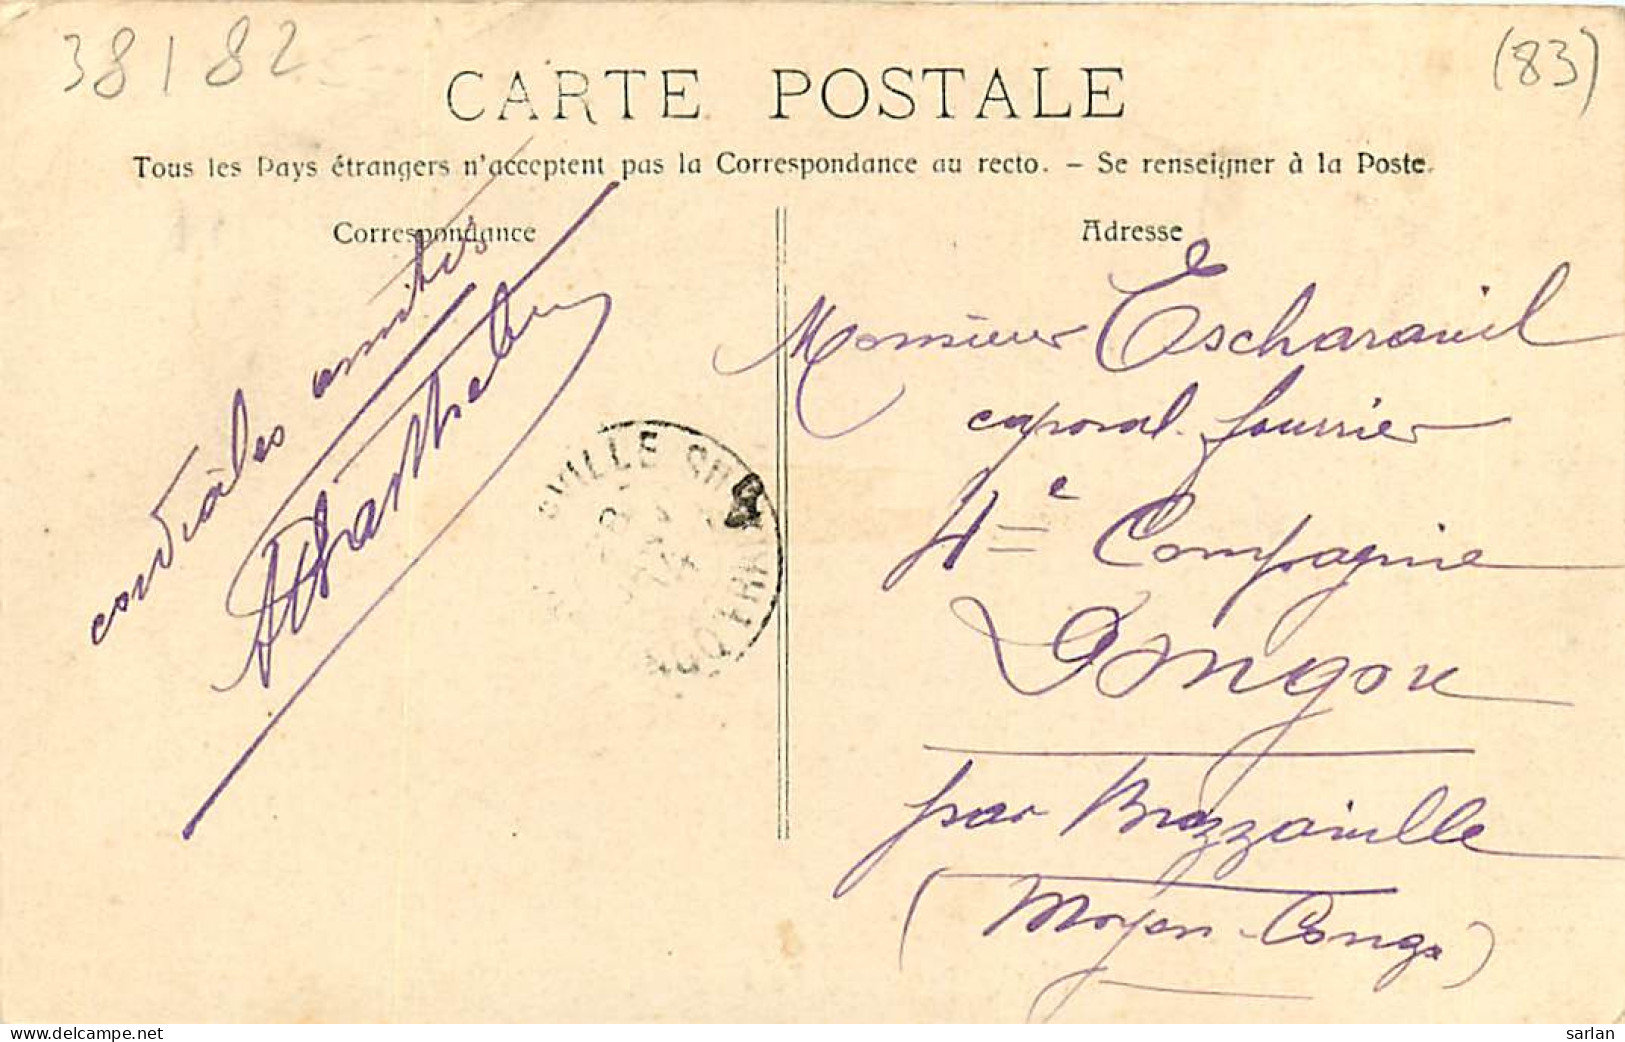 38182
(83)
CARTE POSTALE
Tous les Pays étrangers n'acceptent pas la Correspondance au recto. – Se renseigner à la Poste.
Correspondance
Adresse
cordiales amitiés
Monsieur
caporal fourrier
4e Compagnie
Dongou
par Brazzaville
(Moyen-Congo)
VILLE
www.delcampe.net
sarlan